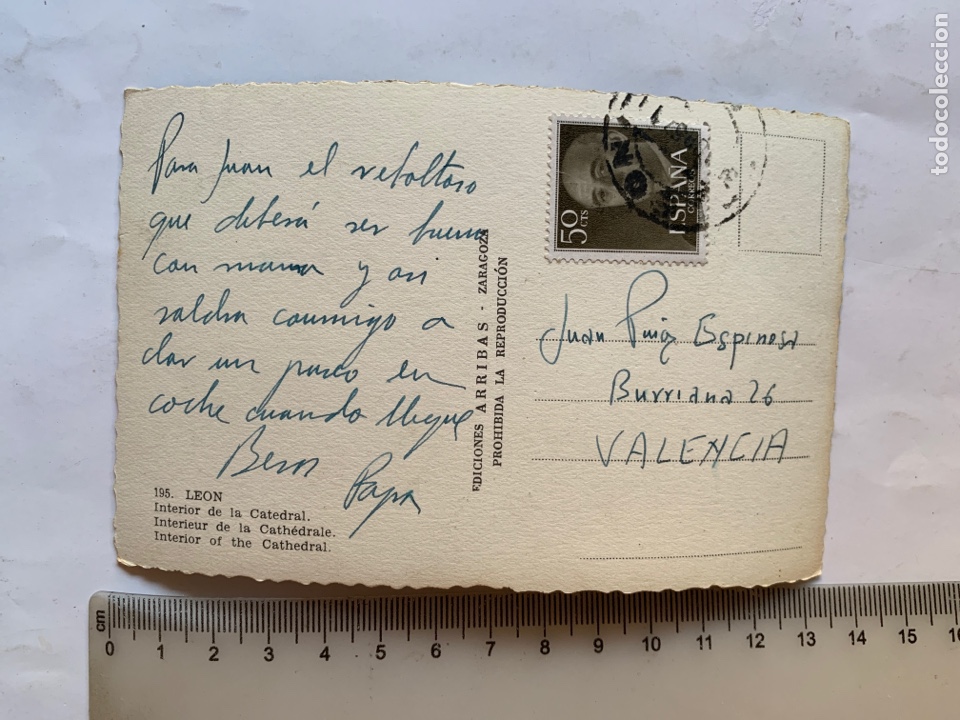 Para Juan el reboltoso
que deberá ser bueno
con mama y asi
saldra conmigo a
dar un paseo en
coche cuando llegue
Besos
Papa
195. LEON
Interior de la Catedral.
Interieur de la Cathédrale.
Interior of the Cathedral.
EDICIONES ARRIBAS - ZARAGOZA
PROHIBIDA LA REPRODUCCIÓN
50 CTS
ESPAÑA
CORREOS
Juan Puig Espinosa
Burriana 26
VALENCIA
todocoleccion
cm
0 1 2 3 4 5 6 7 8 9 10 11 12 13 14 15 16